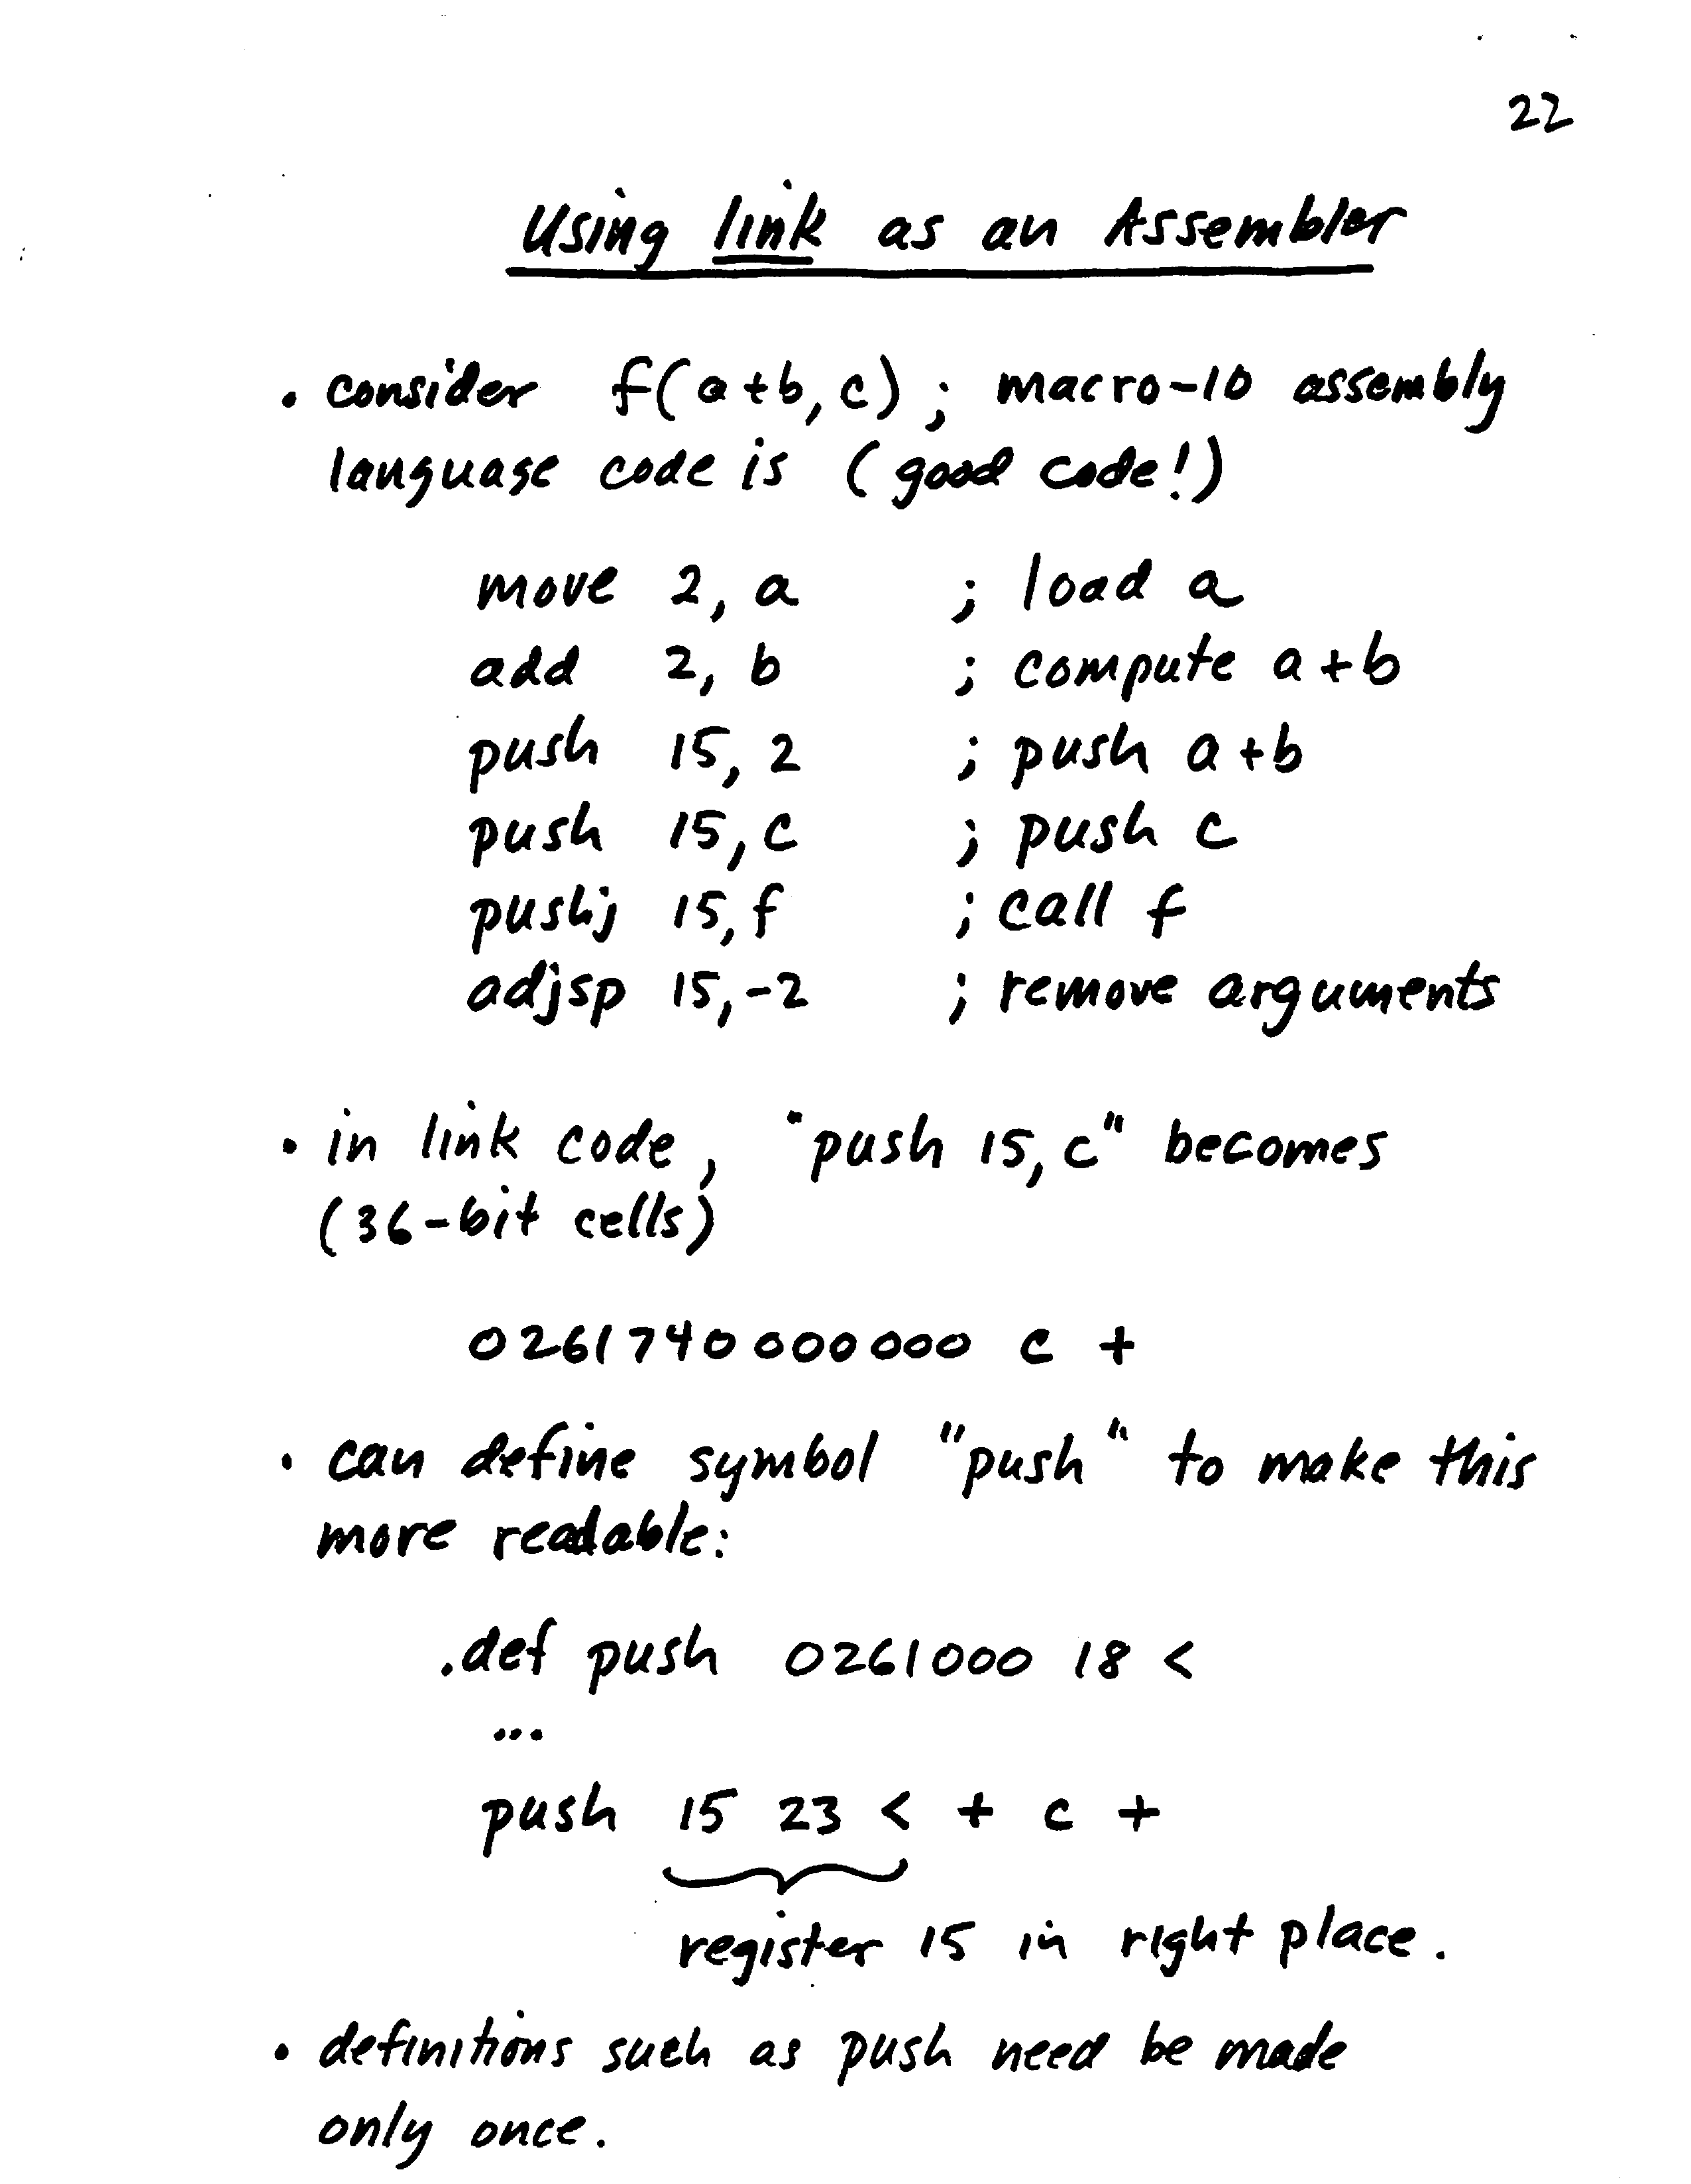 22
Using link as an Assembler
• consider f(a+b, c); macro-10 assembly
language code is (good code!)
move 2, a ; load a
add 2, b ; compute a+b
push 15, 2 ; push a+b
push 15, c ; push c
pushj 15, f ; call f
adjsp 15, -2 ; remove arguments
• in link code, "push 15, c" becomes
(36-bit cells)
0261740000000 c +
• can define symbol "push" to make this
more readable:
.def push 0261000 18 <
...
push 15 23 < + c +
register 15 in right place.
• definitions such as push need be made
only once.